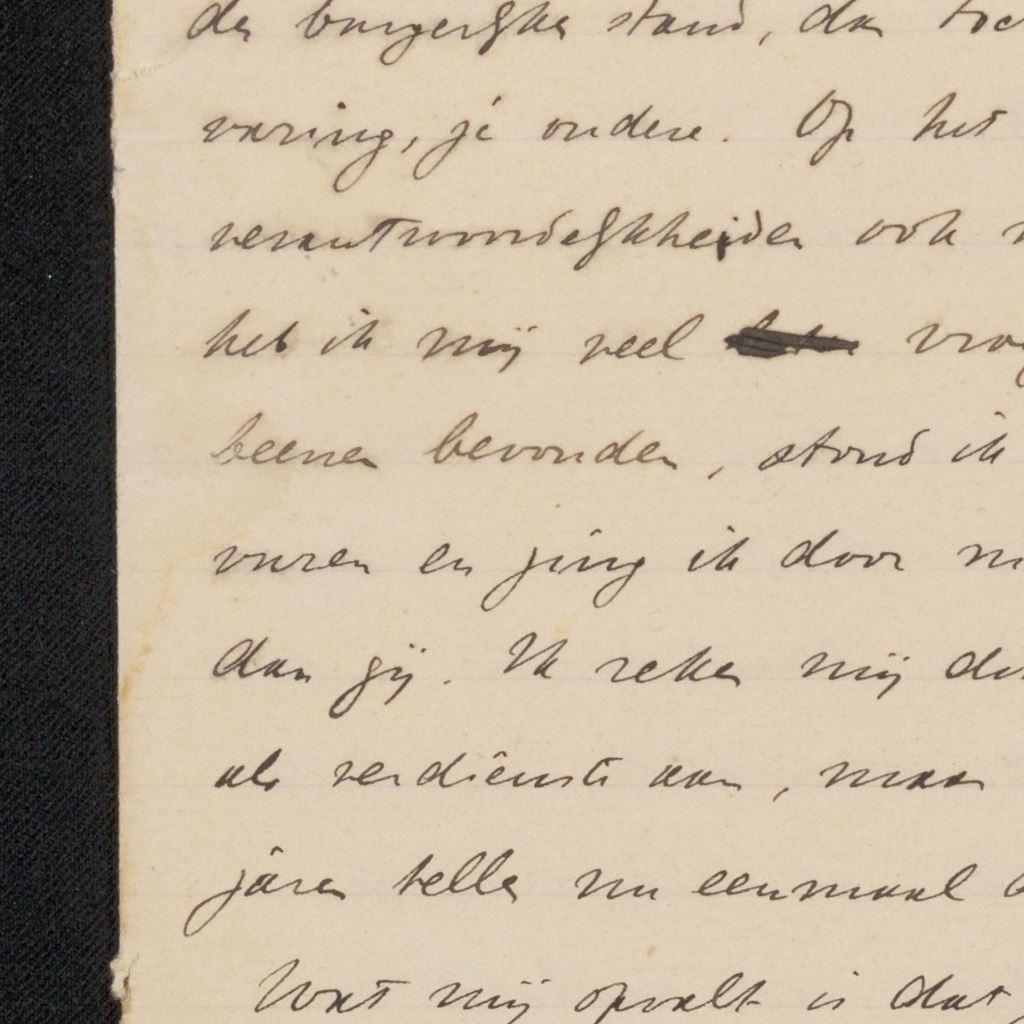 den burgerlijken stand, dan toch
varing, je oudere. Op het
verantwoordelijkheiden ook
heb ik mij veel
beenen bevonden, stond ik
vuren en ging ik door
dan gij. Ik reken mij
als verdienste aan, maar
jaren tellen nu eenmaal
Wat mij opvalt is dat